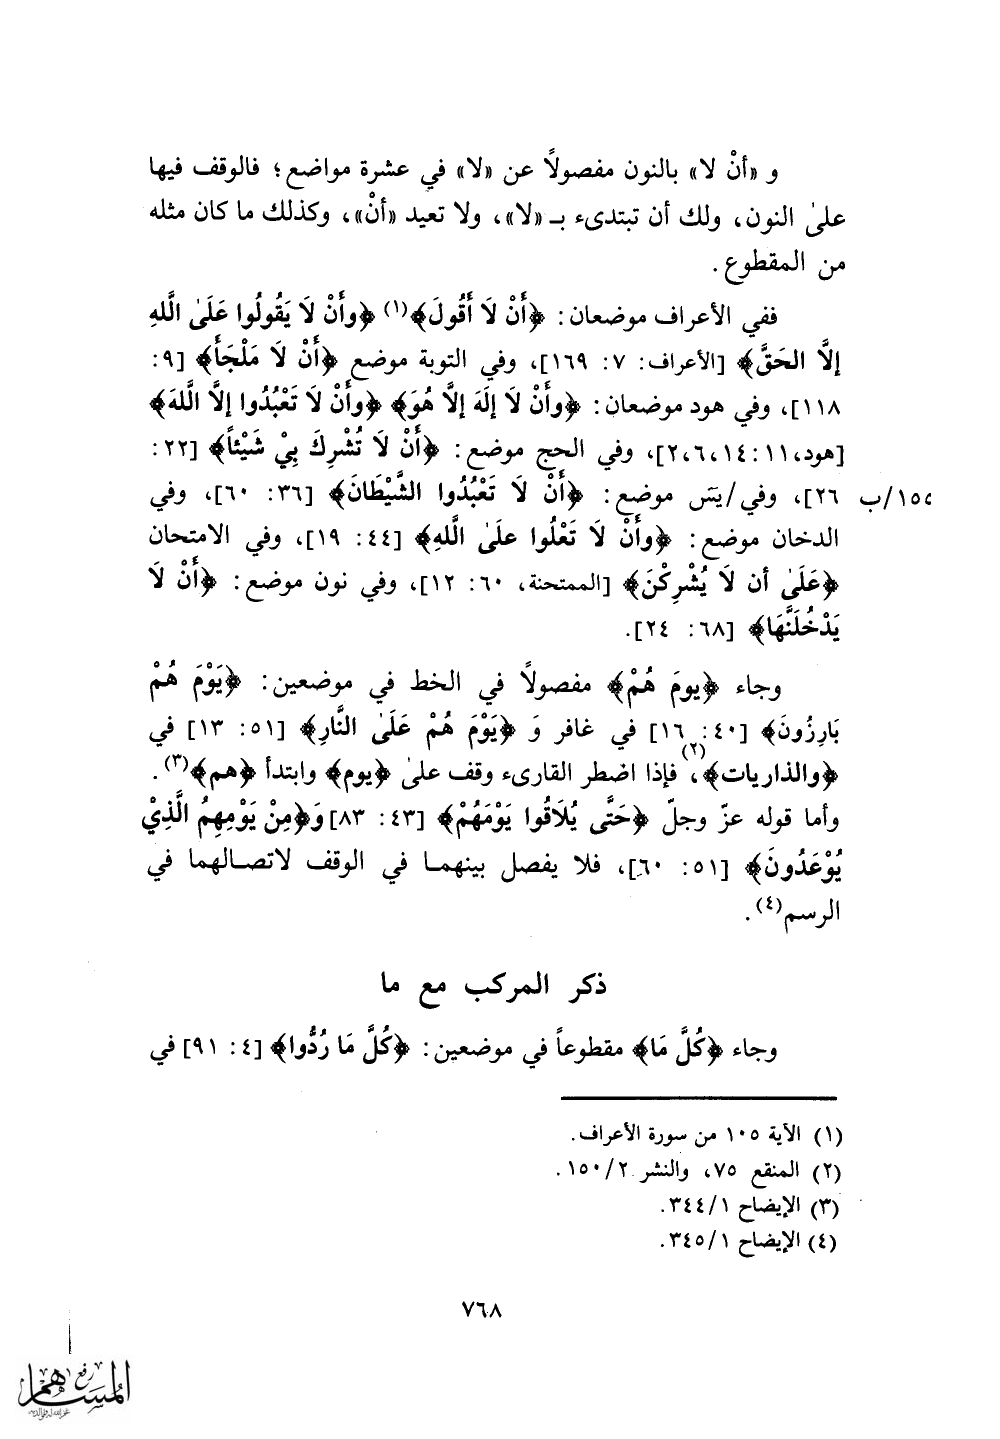 و «أنْ لا» بالنون مفصولاً عن «لا» في عشرة مواضع؛ فالوقف فيها
علىٰ النون، ولك أن تبتدىء بـ «لا»، ولا تعيد «أنْ»، وكذلك ما كان مثله
من المقطوع.
ففي الأعراف موضعان: ﴿أَنْ لَا أَقُولَ﴾(١) ﴿وأَنْ لَا يَقُولُوا عَلَىٰ اللَّهِ
إلَّا الحَقَّ﴾ [الأعراف: ٧: ١٦٩]، وفي التوبة موضع ﴿أَنْ لَا مَلْجَأَ﴾ [٩:
١١٨]، وفي هود موضعان: ﴿وأَنْ لَا إلَهَ إلَّا هُوَ﴾ ﴿وأَنْ لَا تَعْبُدُوا إلَّا اللَّهَ﴾
[هود، ١١: ١٤، ٢،٦]، وفي الحج موضع: ﴿أَنْ لَا تُشْرِكَ بِيْ شَيْئاً﴾ [٢٢:
٢٦]، وفي/يسَ موضع: ﴿أَنْ لَا تَعْبُدُوا الشَّيْطَانَ﴾ [٣٦: ٦٠]، وفي
الدخان موضع: ﴿وأَنْ لَا تَعْلُوا علَىٰ اللَّهِ﴾ [٤٤: ١٩]، وفي الامتحان
﴿عَلَىٰ أن لَا يُشْرِكْنَ﴾ [الممتحنة، ٦٠: ١٢]، وفي نون موضع: ﴿أَنْ لَا
يَدْخُلَنَّهَا﴾ [٦٨: ٢٤].
وجاء ﴿يومَ هُمْ﴾ مفصولاً في الخط في موضعين: ﴿يَوْمَ هُمْ
بَارِزُونَ﴾ [٤٠: ١٦] في غافر وَ ﴿يَوْمَ هُمْ عَلَىٰ النَّارِ﴾ [٥١: ١٣] في
﴿والذاريات﴾(٢)، فإذا اضطر القارىء وقف علىٰ ﴿يوم﴾ وابتدأ ﴿هم﴾(٣).
وأما قوله عزّ وجلّ ﴿حَتَّى يُلَاقُوا يَوْمَهُمْ﴾ [٤٣: ٨٣] وَ﴿مِنْ يَوْمِهِمُ الَّذِيْ
يُوْعَدُونَ﴾ [٥١: ٦٠]، فلا يفصل بينهما في الوقف لاتصالهما في
الرسم(٤).
ذكر المركب مع ما
وجاء ﴿كُلَّ مَا﴾ مقطوعاً في موضعين: ﴿كُلَّ مَا رُدُّوا﴾ [٤: ٩١] في
(١) الآية ١٠٥ من سورة الأعراف.
(٢) المنقع ٧٥، والنشر ١٥٠/٢.
(٣) الإيضاح ٣٤٤/١.
(٤) الإيضاح ٣٤٥/١.
٧٦٨
رفع
المساهم